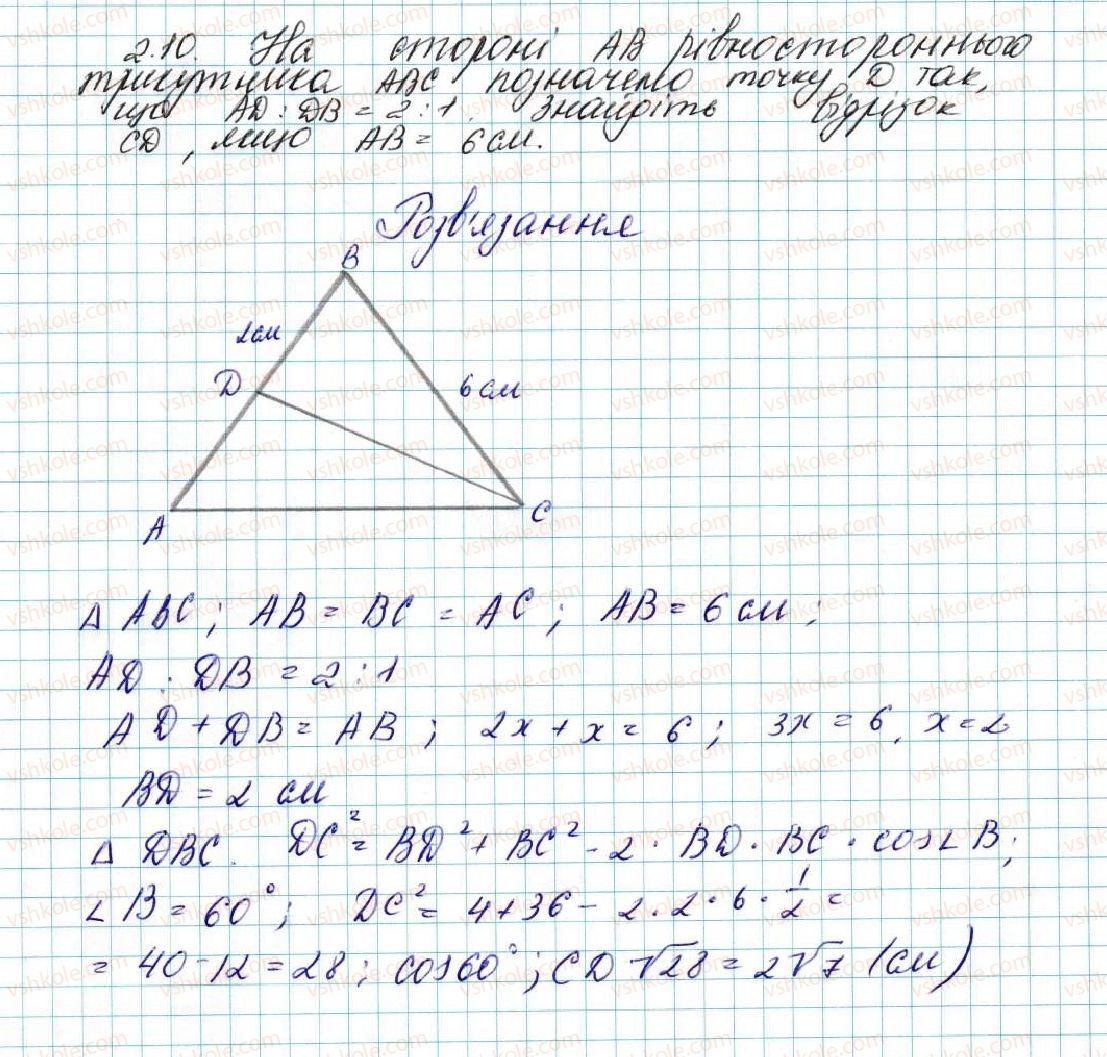 2.10. На стороні AB рівностороннього
трикутника ABC позначено точку D так,
що AD : DB = 2 : 1. Знайдіть відрізок
CD, якщо AB = 6 см.
Розв'язання
B
2 см
D
6 см
A
C
Δ ABC; AB = BC = AC; AB = 6 см;
AD : DB = 2 : 1
AD + DB = AB; 2x + x = 6; 3x = 6, x = 2
BD = 2 см
Δ DBC. DC² = BD² + BC² - 2 · BD · BC · cos∠B;
∠B = 60°; DC² = 4 + 36 - 2 · 2 · 6 · 1/2 =
= 40 - 12 = 28; cos60°; CD √28 = 2√7 (см)